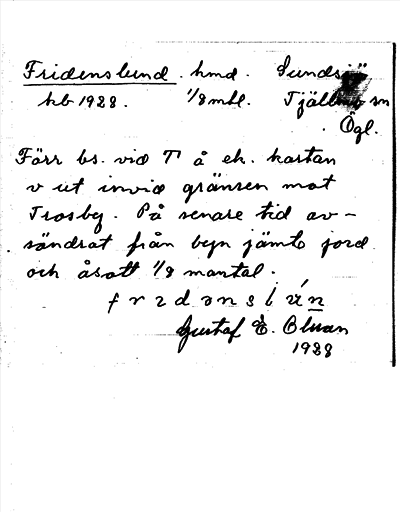 Fridenslund. hmd. Sundsjö
hb 1928. 1/8 mtl. Tjällmo sn
Ögl.
Förr bs. vid T å ek. kartan
v ut invid gränsen mot
Trosby. På senare tid av-
söndrat från byn jämte jord
och åsatt 1/8 mantal.
Gustaf E. Bluan
1928